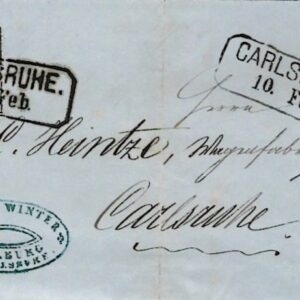 RUHE.
Feb.
CARLS
10. F
Herrn
Heintze, Wagenfabrik
Carlsruhe
WINTER
BURG